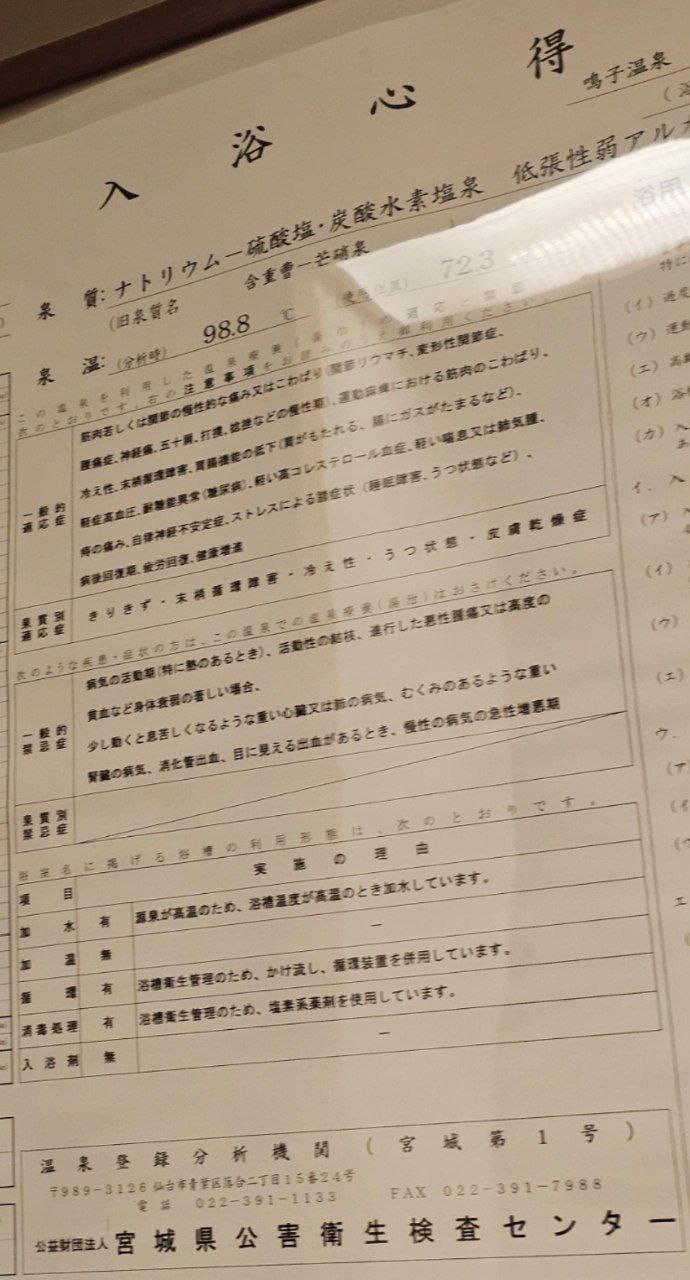 入浴心得
鳴子温泉
泉質:ナトリウム－硫酸塩・炭酸水素塩泉 低張性弱アル
(旧泉質名 含重曹－芒硝泉 )
泉温:(分析時) 98.8 ℃ (使用位置) 72.3
この温泉を利用した温泉療養(湯治)の適応と禁忌
次のとおりです。右の注意事項をお読みのうえ御利用ください。
一般的適応症
筋肉若しくは関節の慢性的な痛み又はこわばり(関節リウマチ、変形性関節症、
腰痛症、神経痛、五十肩、打撲、捻挫などの慢性期)、運動麻痺における筋肉のこわばり、
冷え性、末梢循環障害、胃腸機能の低下(胃がもたれる、腸にガスがたまるなど)、
軽症高血圧、耐糖能異常(糖尿病)、軽い高コレステロール血症、軽い喘息又は肺気腫、
痔の痛み、自律神経不安定症、ストレスによる諸症状(睡眠障害、うつ状態など)、
病後回復期、疲労回復、健康増進
泉質別適応症
きりきず・末梢循環障害・冷え性・うつ状態・皮膚乾燥症
次のような疾患・症状の方は、この温泉での温泉療養(湯治)はおさけください。
一般的禁忌症
病気の活動期(特に熱のあるとき)、活動性の結核、進行した悪性腫瘍又は高度の
貧血など身体衰弱の著しい場合、
少し動くと息苦しくなるような重い心臓又は肺の病気、むくみのあるような重い
腎臓の病気、消化管出血、目に見える出血があるとき、慢性の病気の急性増悪期
泉質別禁忌症
浴室名に掲げる浴槽の利用形態は、次のとおりです。
項目 実施の理由
加水 有 源泉が高温のため、浴槽温度が高温のとき加水しています。
加温 無 －
循環 有 浴槽衛生管理のため、かけ流し、循環装置を併用しています。
消毒処理 有 浴槽衛生管理のため、塩素系薬剤を使用しています。
入浴剤 無 －
温泉登録分析機関(宮城第1号)
〒989-3126 仙台市青葉区落合二丁目15番24号
電話 022-391-1133 FAX 022-391-7988
公益財団法人 宮城県公害衛生検査センター
浴用
特に
(イ) 過度
(ウ) 運動
(エ) 高齢
(オ) 浴
(カ) 入
イ. 入
(ア)
(イ)
(ウ)
(エ)
ウ.
(ア)
(イ)
エ